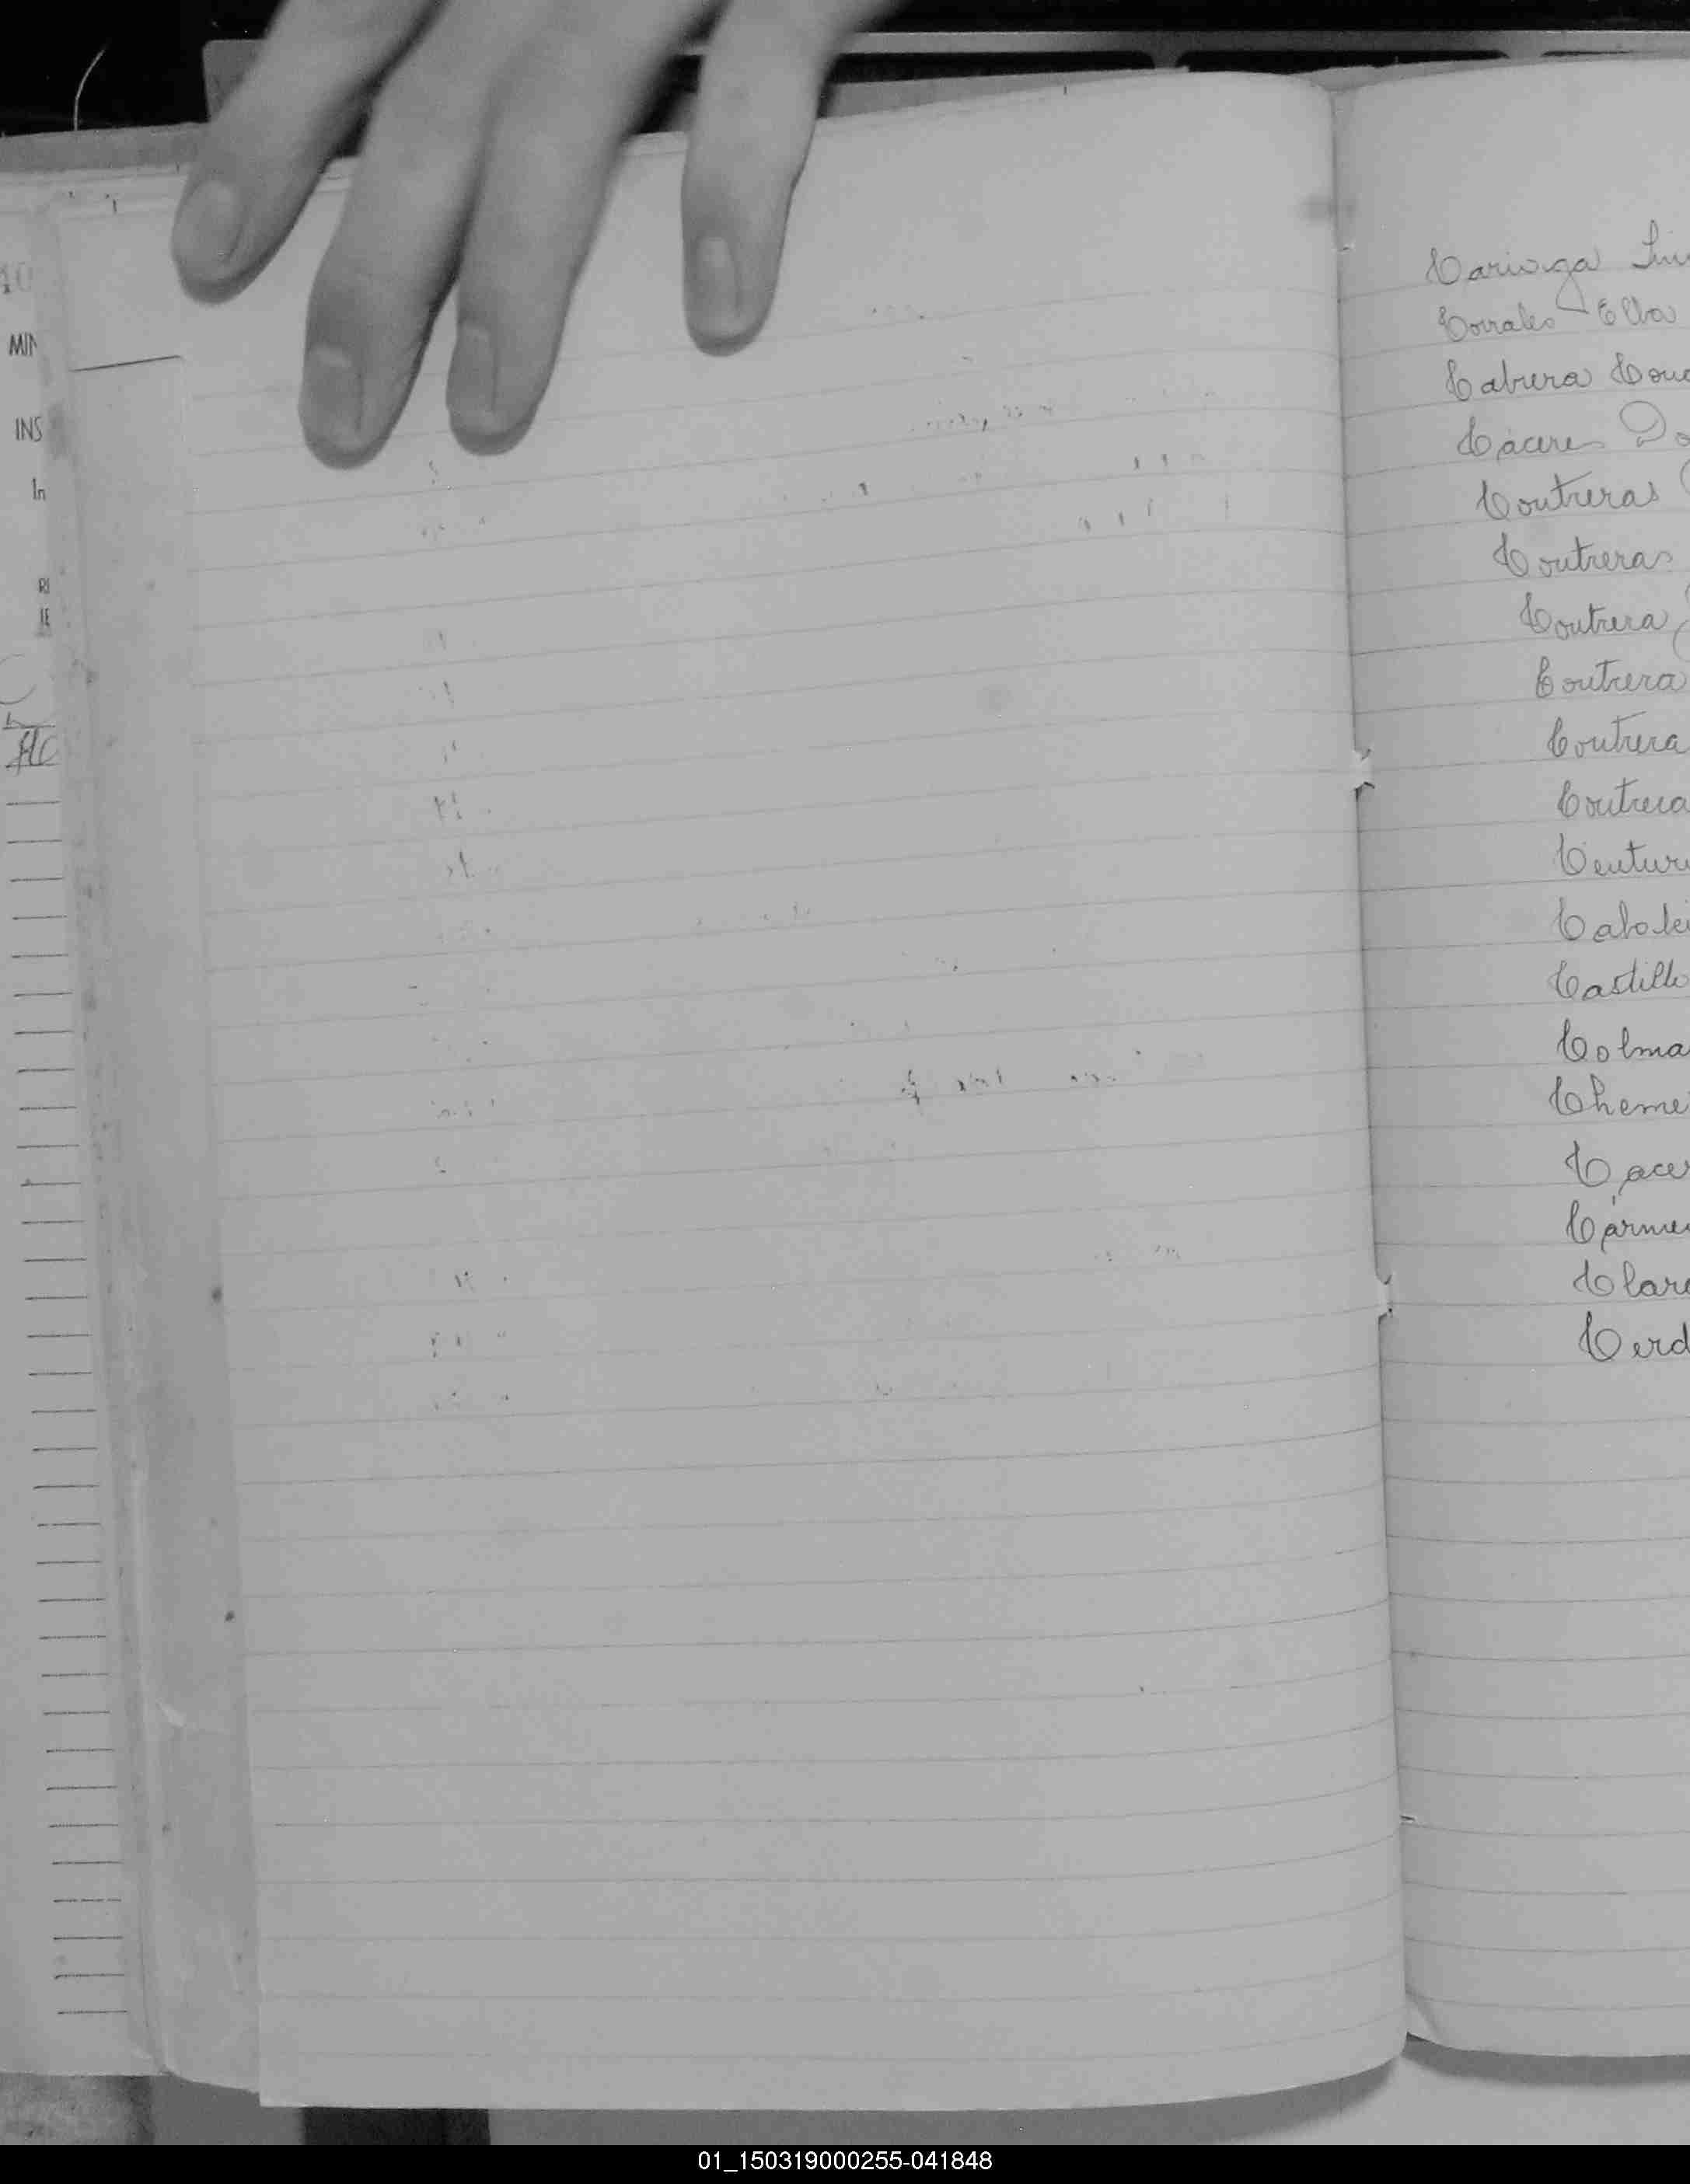 10
MIN
INS
In
Cariaga
Corrales Elba
Cabrera
Cácere Do
Contreras
Contreras
Contrera
Contrera
Contrera
Contrera
Centur
Cabole
Castillo
Colma
Cheme
Cacer
Cárme
Clar
Cerd
01_150319000255-041848